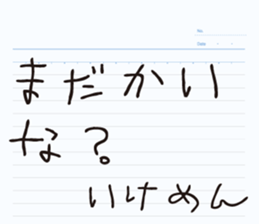 No.
Date ・ ・
まだかい
な？
いけめん